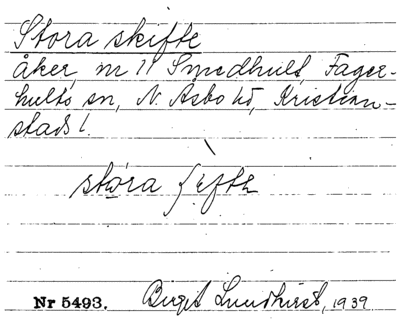 Stora skifte
åker, nr 11 Smedhult, Fager-
hults sn, N. Åsbo hd, Kristian-
stads l.
stóra ʃefte
Nr 5493. Birgit Lundkvist, 1939